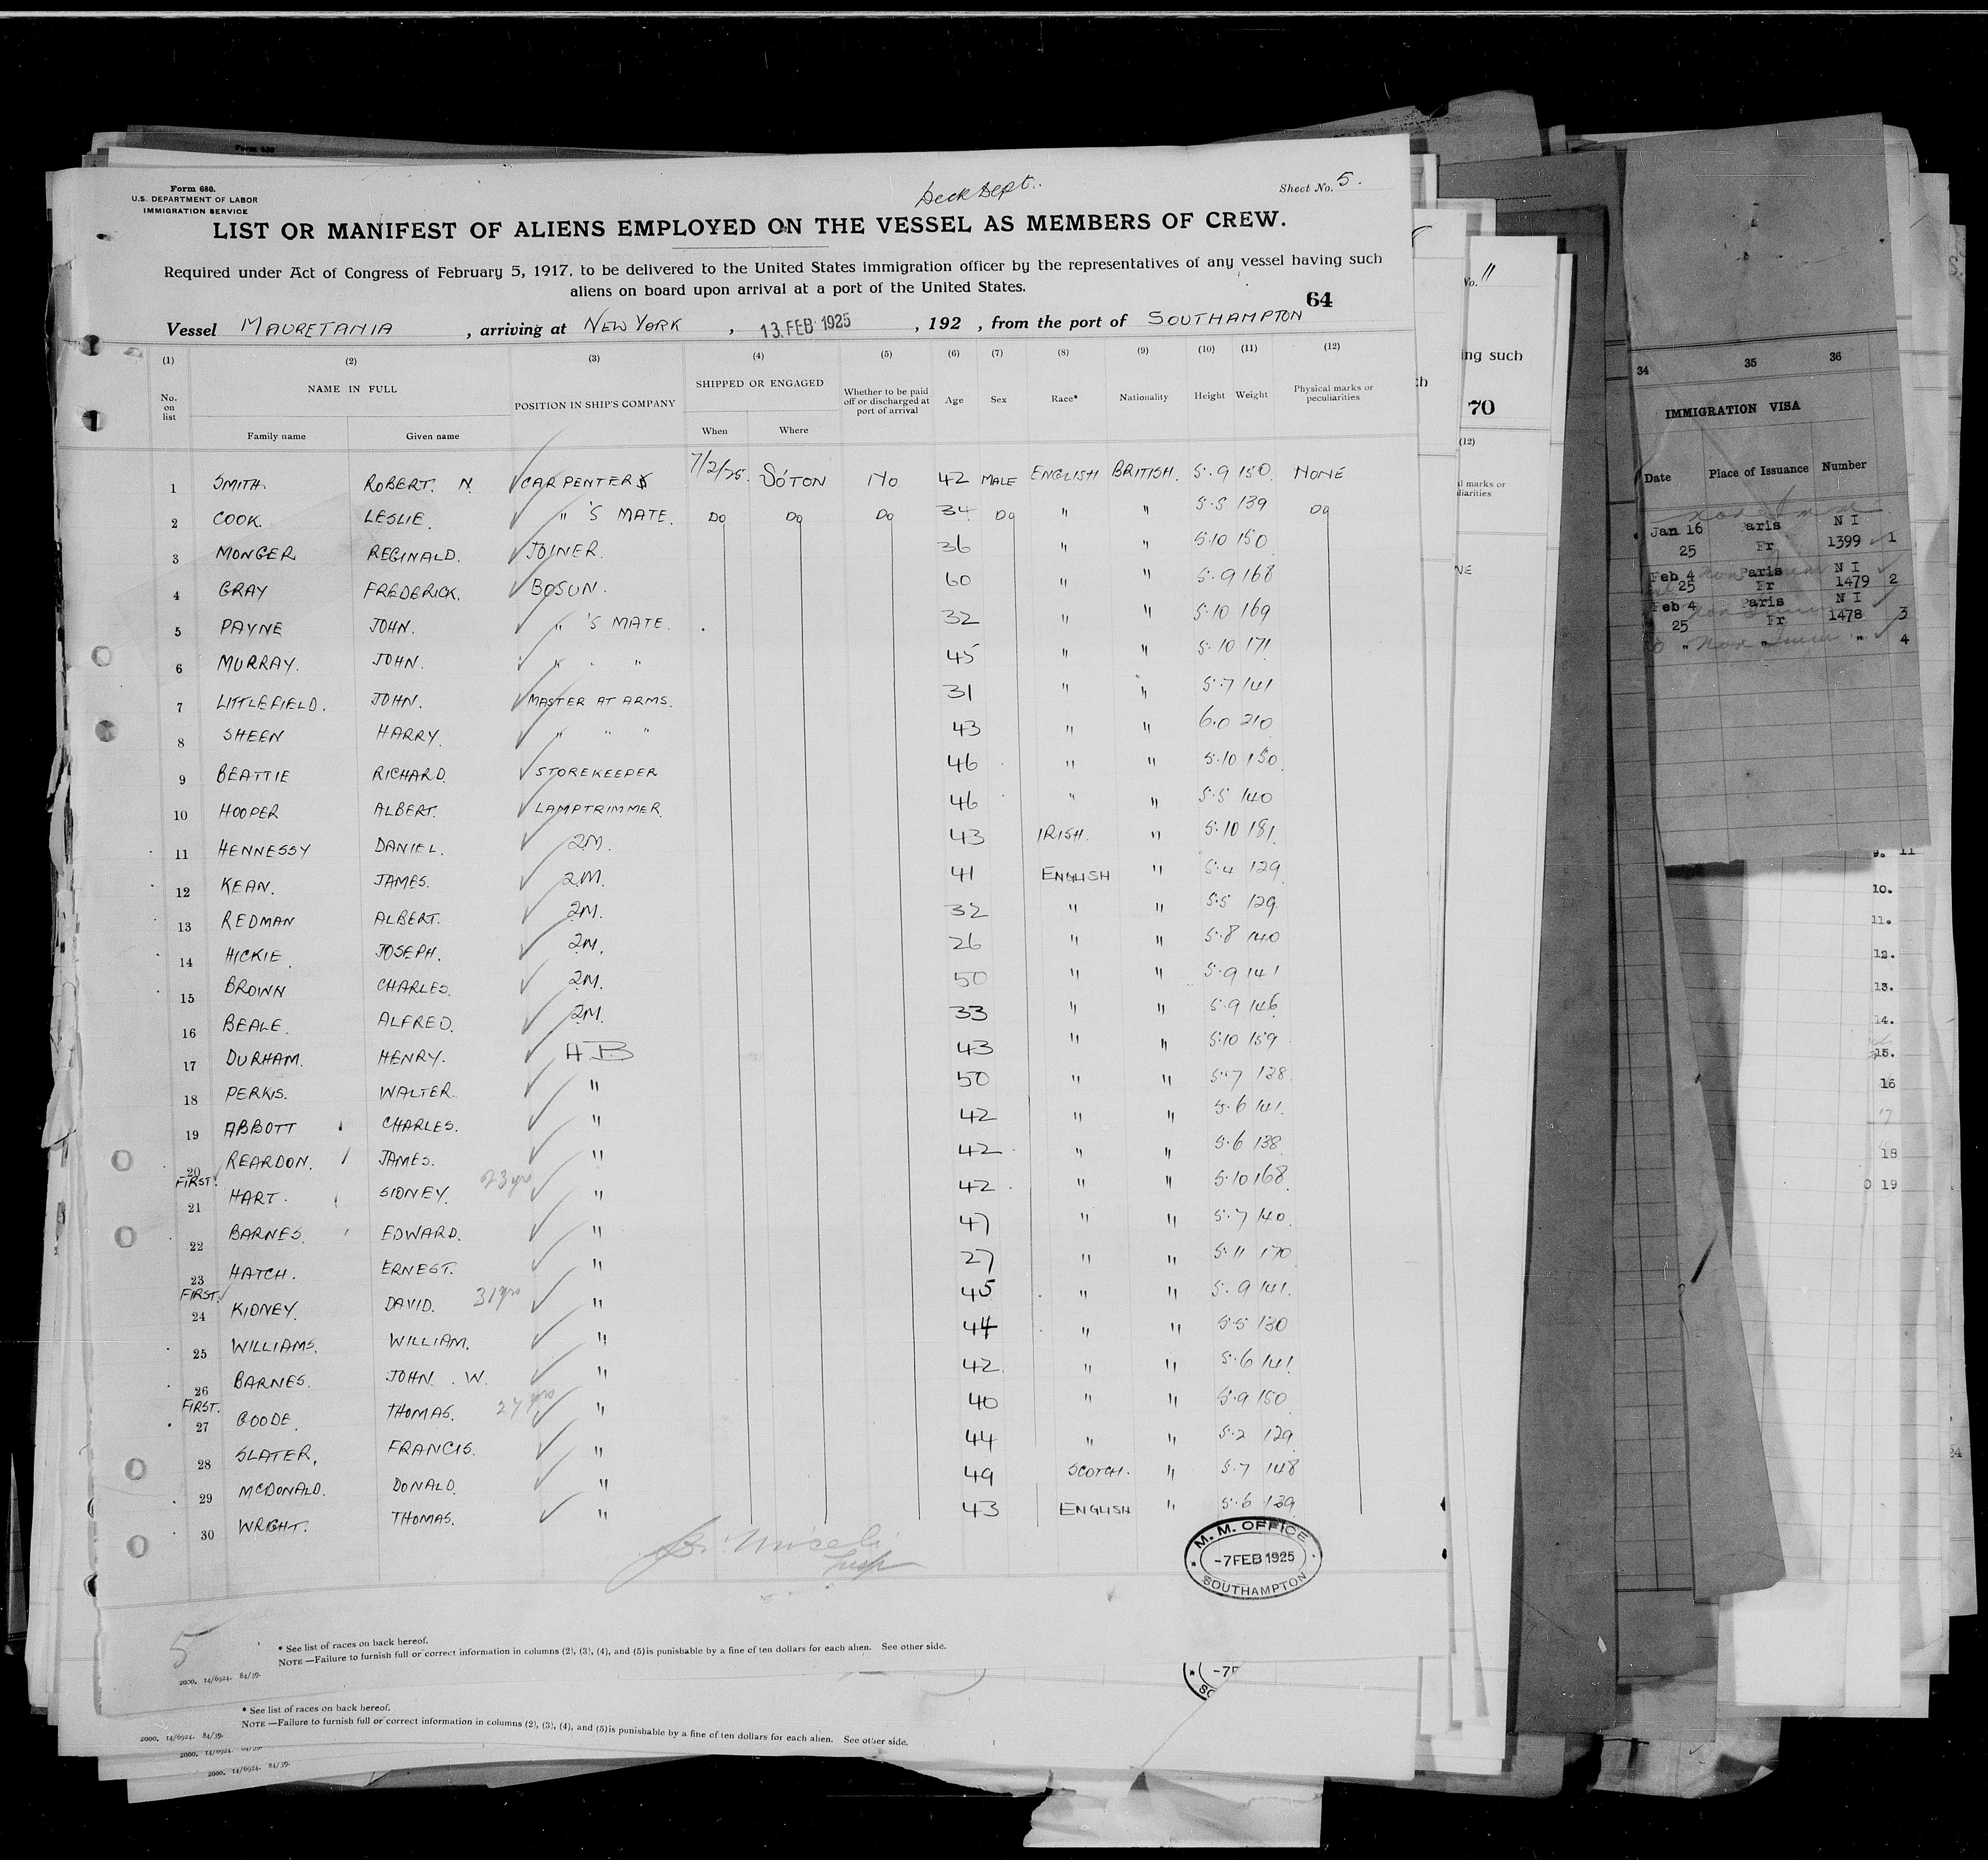 Form 630
Form 680.
U.S. DEPARTMENT OF LABOR
IMMIGRATION SERVICE
Deck Dept.
Sheet No. 5.
LIST OR MANIFEST OF ALIENS EMPLOYED ON THE VESSEL AS MEMBERS OF CREW.
Required under Act of Congress of February 5, 1917, to be delivered to the United States immigration officer by the representatives of any vessel having such
aliens on board upon arrival at a port of the United States.
64
Vessel MAURETANIA , arriving at NEW YORK , 13 FEB 1925 , 192 , from the port of SOUTHAMPTON
(1) (2) (3) (4) (5) (6) (7) (8) (9) (10) (11) (12)
No. on list NAME IN FULL POSITION IN SHIP'S COMPANY SHIPPED OR ENGAGED Whether to be paid off or discharged at port of arrival Age Sex Race* Nationality Height Weight Physical marks or peculiarities
Family name Given name When Where
1 SMITH. ROBERT. N. CARPENTER 7/2/25. SO'TON NO 42 MALE ENGLISH BRITISH. 5.9 150. NONE
2 COOK. LESLIE. " 'S MATE. DO DO DO 34 DO " " 5.5 139 DO
3 MONGER REGINALD. JOINER. 36 " " 5.10 150
4 GRAY FREDERICK. BOSUN. 60 " " 5.9 168
5 PAYNE JOHN. " 'S MATE. 32 " " 5.10 169
6 MURRAY. JOHN. " " " 45 " " 5.10 171
7 LITTLEFIELD. JOHN. MASTER AT ARMS. 31 " " 5.7 141
8 SHEEN HARRY. " " " 43 " " 6.0 210
9 BEATTIE RICHARD. STOREKEEPER 46 " " 5.10 150
10 HOOPER ALBERT. LAMPTRIMMER. 46 " " 5.5 140
11 HENNESSY DANIEL. 2M. 43 IRISH. " 5.10 181
12 KEAN. JAMES. 2.M. 41 ENGLISH " 5.4 129
13 REDMAN ALBERT. 2M. 32 " " 5.5 129
14 HICKIE JOSEPH. 2M. 26 " " 5.8 140
15 BROWN CHARLES. 2M. 50 " " 5.9 141
16 BEALE. ALFRED. 2M. 33 " " 5.9 146
17 DURHAM. HENRY. A.B 43 " " 5.10 159
18 PERKIS. WALTER. " 50 " " 5.7 138
19 ABBOTT CHARLES. " 42 " " 5.6 141.
20 REARDON. JAMES. " 42 " " 5.6 138
FIRST.
21 HART. SIDNEY. 23 yrs " 42 " " 5.10 168
22 BARNES. EDWARD. " 47 " " 5.7 140
23 HATCH. ERNEST. " 27 " " 5.11 170
FIRST.
24 KIDNEY. DAVID. 31 yrs " 45 " " 5.9 141.
25 WILLIAMS. WILLIAM. " 44 " " 5.5 130
26 BARNES. JOHN. W. " 42 " " 5.6 141
FIRST.
27 GOODE. THOMAS. 27 yrs " 40 " " 5.9 150
28 SLATER. FRANCIS. " 44 " " 5.2 129
29 MCDONALD. DONALD. " 49 SCOTCH. " 5.7 148
30 WRIGHT. THOMAS. " 43 ENGLISH " 5.6 139
M. M. OFFICE
-7 FEB 1925
SOUTHAMPTON
5
* See list of races on back hereof.
NOTE.—Failure to furnish full or correct information in columns (2), (3), (4), and (5) is punishable by a fine of ten dollars for each alien. See other side.
2000. 14/6924. 84/39.
* See list of races on back hereof.
NOTE.—Failure to furnish full or correct information in columns (2), (3), (4), and (5) is punishable by a fine of ten dollars for each alien. See other side.
2000. 14/6924. 84/39.
2000. 14/6924. 84/39.
2000. 14/6924. 84/39.
-7F
No. 11
ing such
ch
70
(12)
al marks or
liarities
NE
34 35 36
IMMIGRATION VISA
Date Place of Issuance Number
Jan 16 Paris N I
25 Fr 1399 1
Feb 4 Paris N I
25 Fr 1479 2
Feb 4 Paris N I
25 Fr 1478 3
" " " 4
9. 11
10.
11.
12.
13.
14.
15.
16
17
18
0 19
24